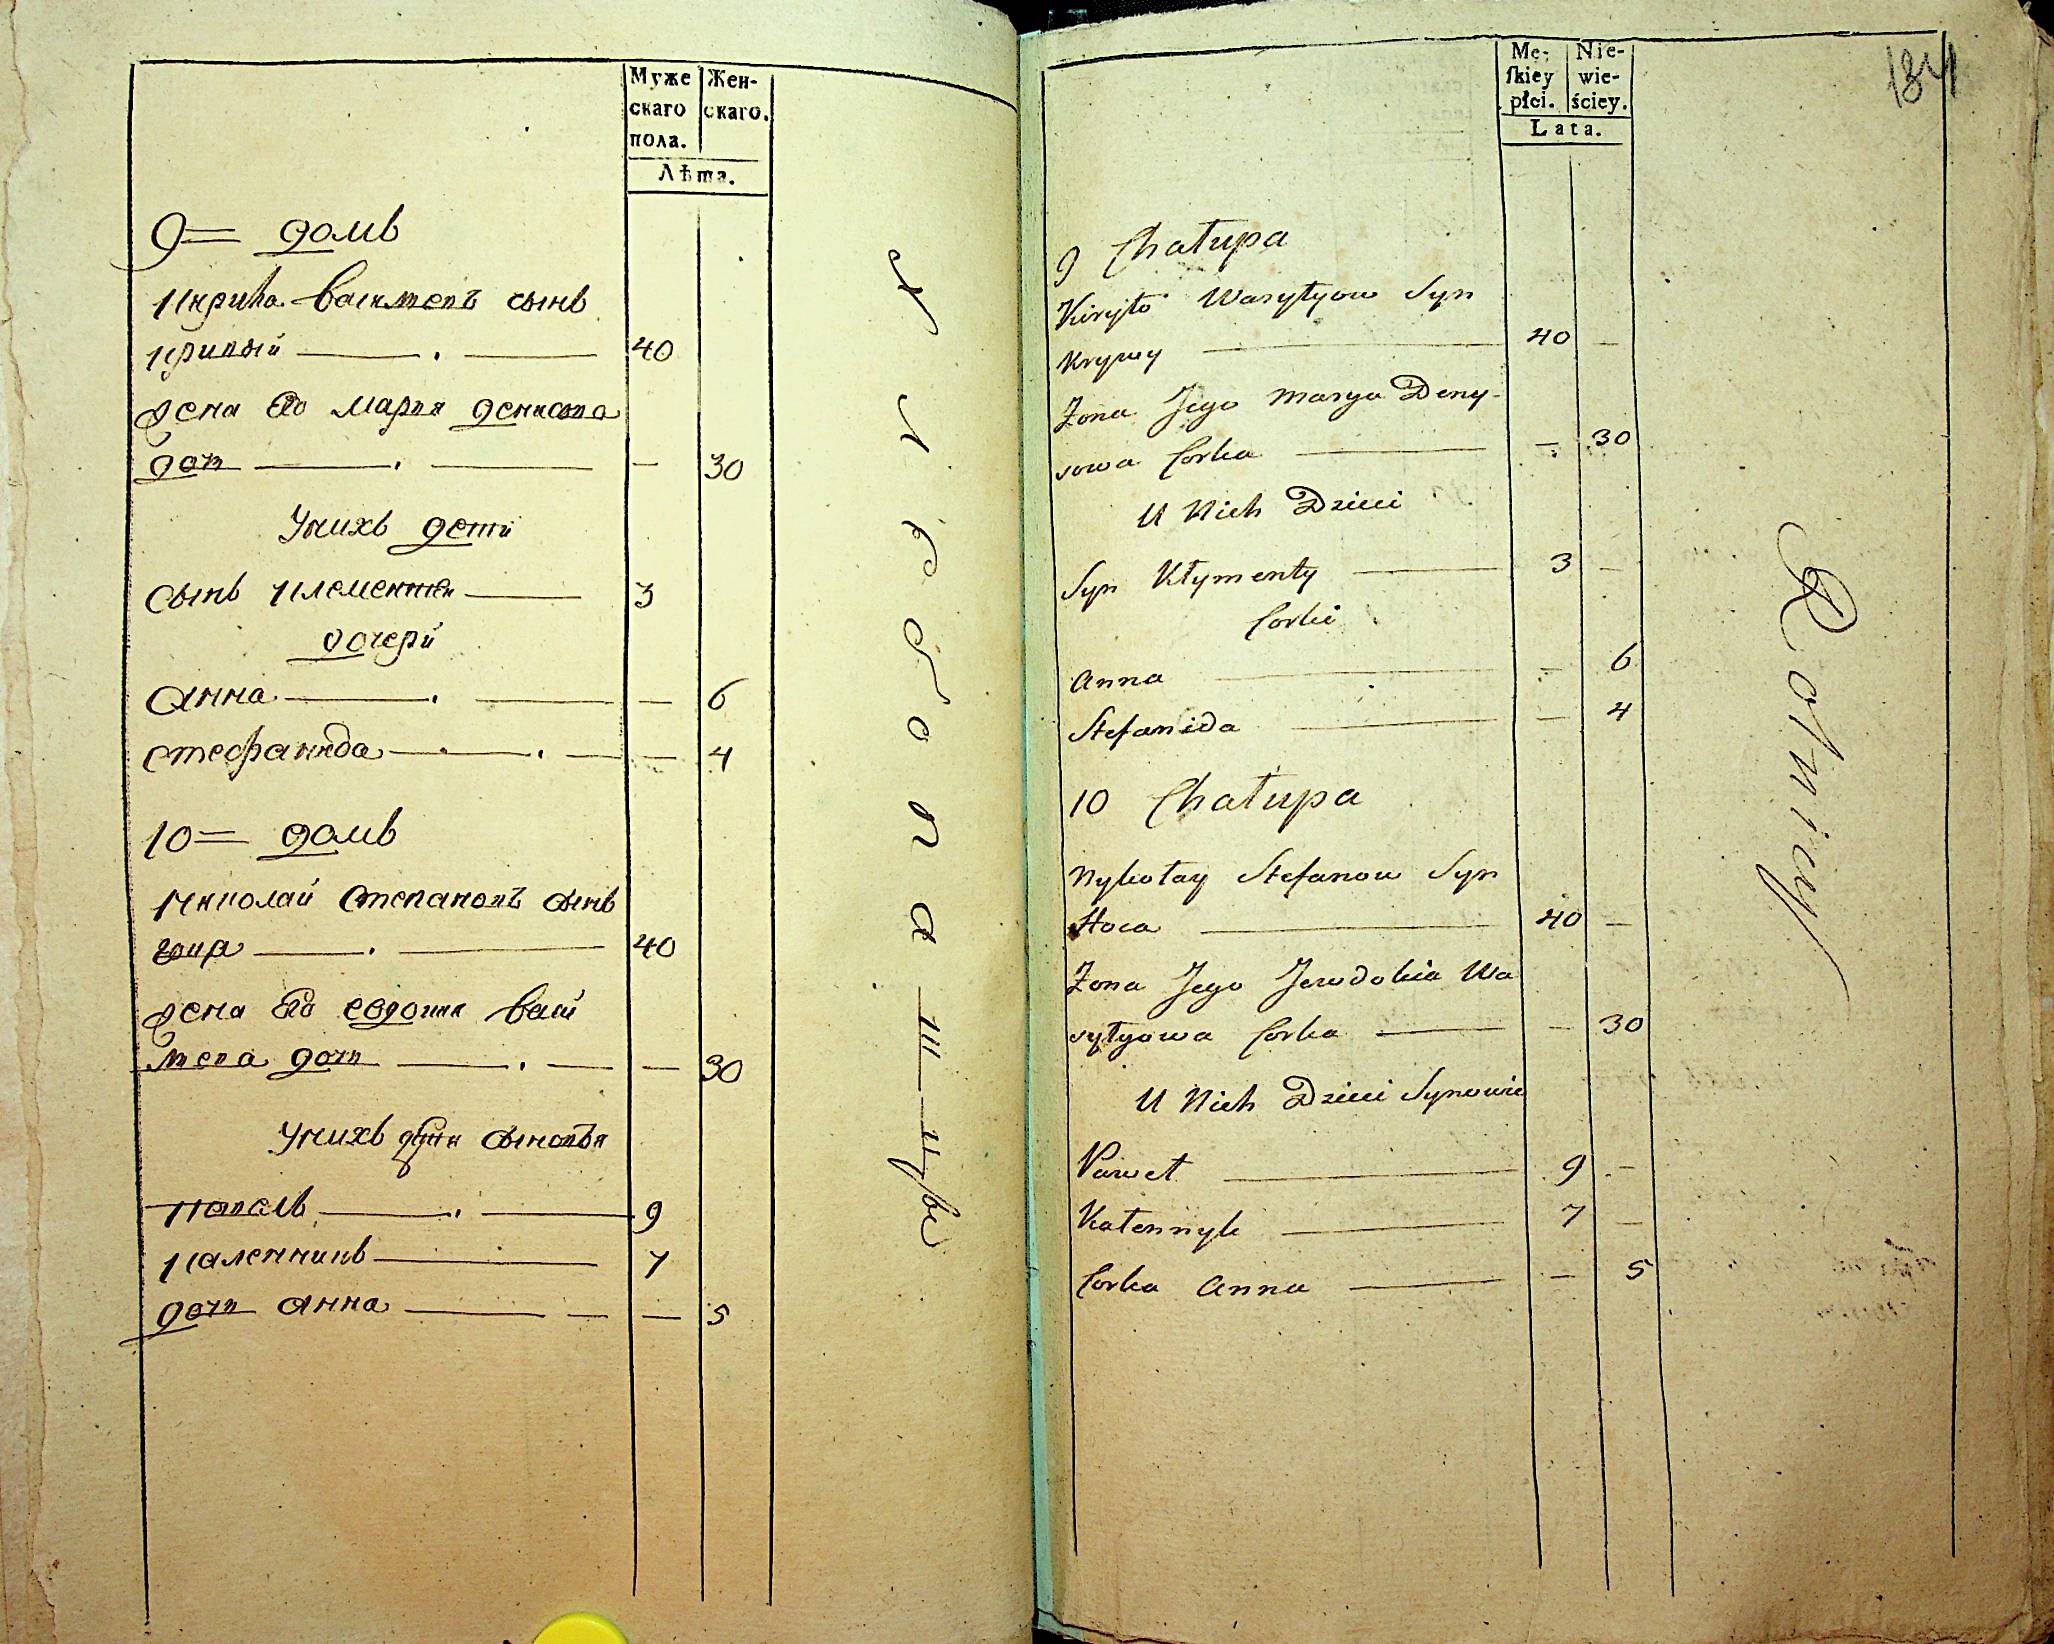 Муже
скаго
пола.
Жен-
скаго.
Лѣта.
9 = домъ
Кирила Васильевъ сынъ
кривый — . — 40
жена его Мария денисова
дочь — . — — 30
У нихъ дети
сынъ Клементий — 3
дочери
Анна — . — — 6
Стефанида — . — — 4
10 = домъ
Николай Степановъ сынъ
— . — 40
жена его евдокия Васи
льева дочь — . — — 30
У нихъ дети сыновья
Павелъ — . — 9
Каленникъ — 7
дочь Анна — — — 5
Хлебопашцы
Mę-
skiey
płci.
Nie-
wie-
ściey.
Lata.
134
9 Chałupa
Kiryło Wasylyow Syn
Krywy — 40 —
Żona Jego Marya Deny-
sowa Corka — — 30
U Nich Dzieci
Syn Kłymenty — 3 —
Corki
Anna — — 6
Stefanida — — 4
10 Chałupa
Nykołay Stefanow Syn
— 40 —
Żona Jego Jewdokia Wa
sylyowa Corka — — 30
U Nich Dzieci Synowie
Paweł — 9 —
Kalennyk — 7 —
Corka Anna — — 5
Rolnicy